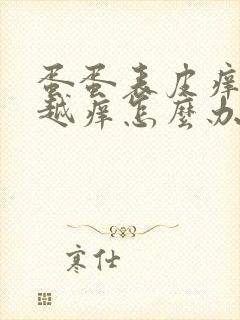 蛋蛋表皮痒
越痒怎麼办
寒仕